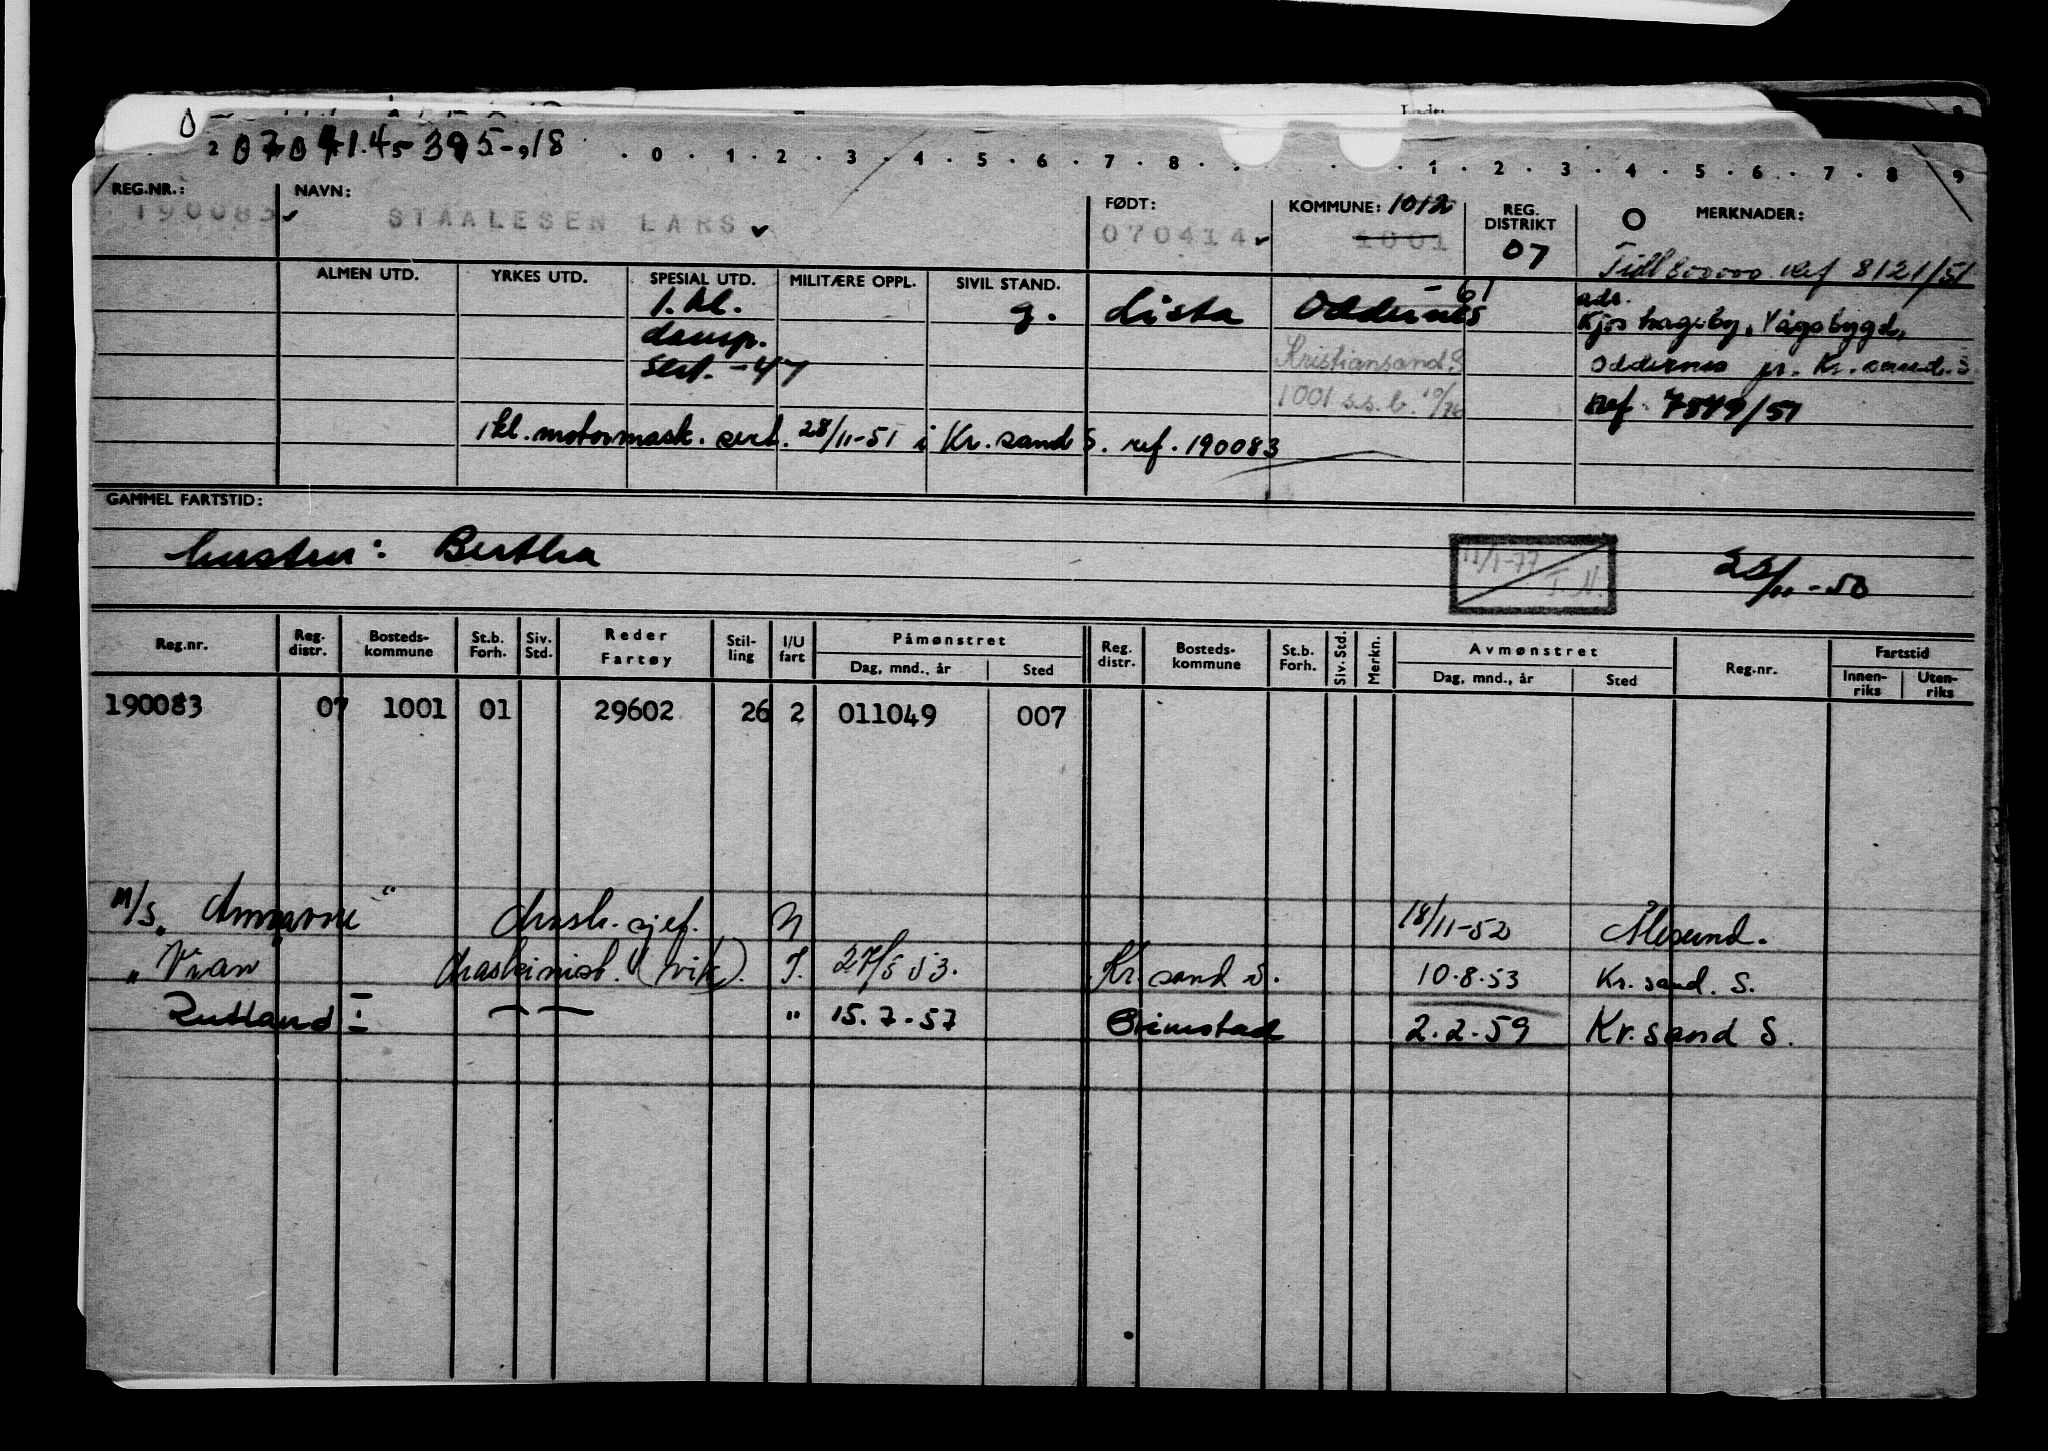 070414-395-18
2 . 0 . 1 . 2 . 3 . 4 . 5 . 6 . 7 . 8 . . 1 . 2 . 3 . 4 . 5 . 6 . 7 . 8 9
REG.NR.: NAVN: FØDT: KOMMUNE: 1012 REG. DISTRIKT MERKNADER:
190083 STAALESEN LARS 070414 1001 07
Tidl 800000 Ref 8121/51
ALMEN UTD. YRKES UTD. SPESIAL UTD. MILITÆRE OPPL. SIVIL STAND. -61
1. kl. g. Lista Oddernes adr. Kjos hageby, Vågsbygd,
damp. Kristiansand S Oddernes pr. Kr.sand. S.
sert. -47 1001 s.s.b. Ref. 7879/51
1kl. motormask. sert. 28/11-51 i Kr. sand S. ref. 190083
GAMMEL FARTSTID:
hustru: Bertha 11/1-77 T.N. 23/11-50
Reg.nr. Reg. distr. Bosteds-kommune St.b. Forh. Siv. Std. Reder Fartøy Stil-ling I/U fart Påmønstret Reg. distr. Bosteds-kommune St.b. Forh. Siv. Std. Merkn. Avmønstret Reg.nr. Fartstid
Dag, mnd., år Sted Dag, mnd., år Sted Innen-riks Uten-riks
190083 07 1001 01 29602 26 2 011049 007
M/S. Mask. sjef. U 18/11-52 Ålesund.
" Vivan Maskinist. (vik). I. 27/5 53. Kr. sand S. 10.8.53 Kr. sand. S.
Rutland I — — " 15.7.57 Grimstad 2.2.59 Kr. sand S.